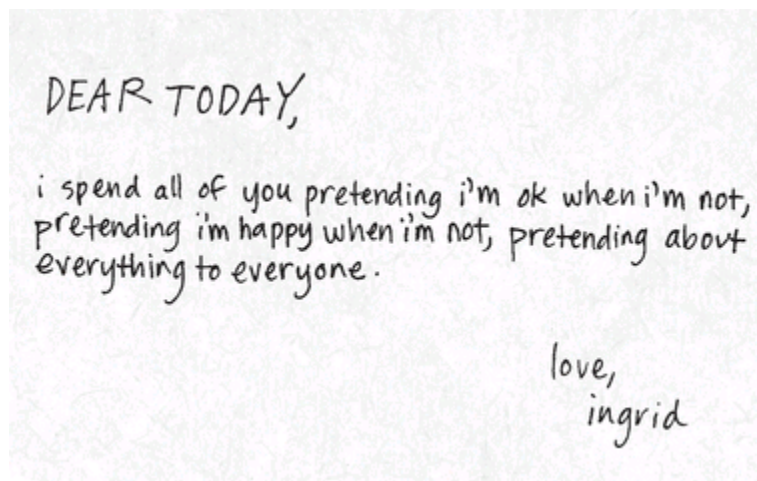 DEAR TODAY,
i spend all of you pretending i'm ok when i'm not,
pretending i'm happy when i'm not, pretending about
everything to everyone.
love,
ingrid